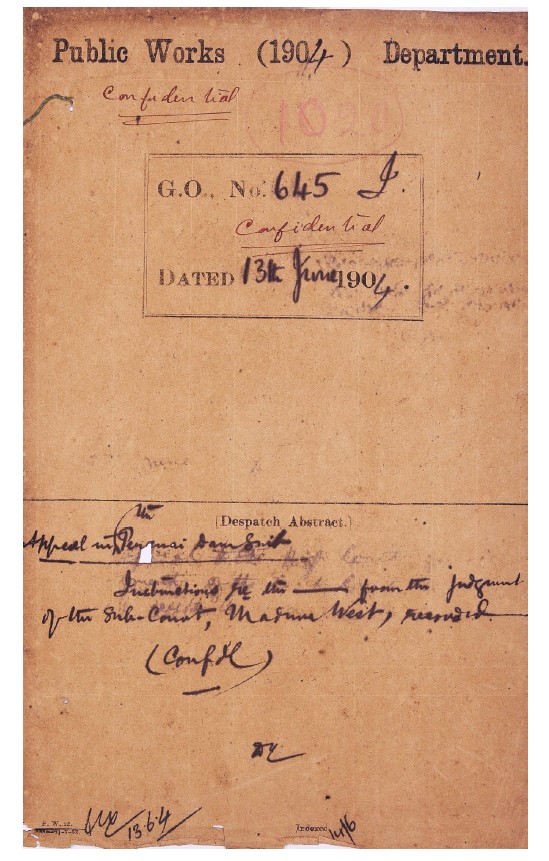 Public Works (1904) Department.
Confidential
102
G.O., No. 645 I.
Confidential
DATED 13th June 1904.
[Despatch Abstract.]
the
Appeal in Peranai Dam Suit
Instructions re the —— from the judgment
of the Sub-Court, Madura West, recorded.
(Confdl)
P. W. D.
13.6.4
Indexed 14/6